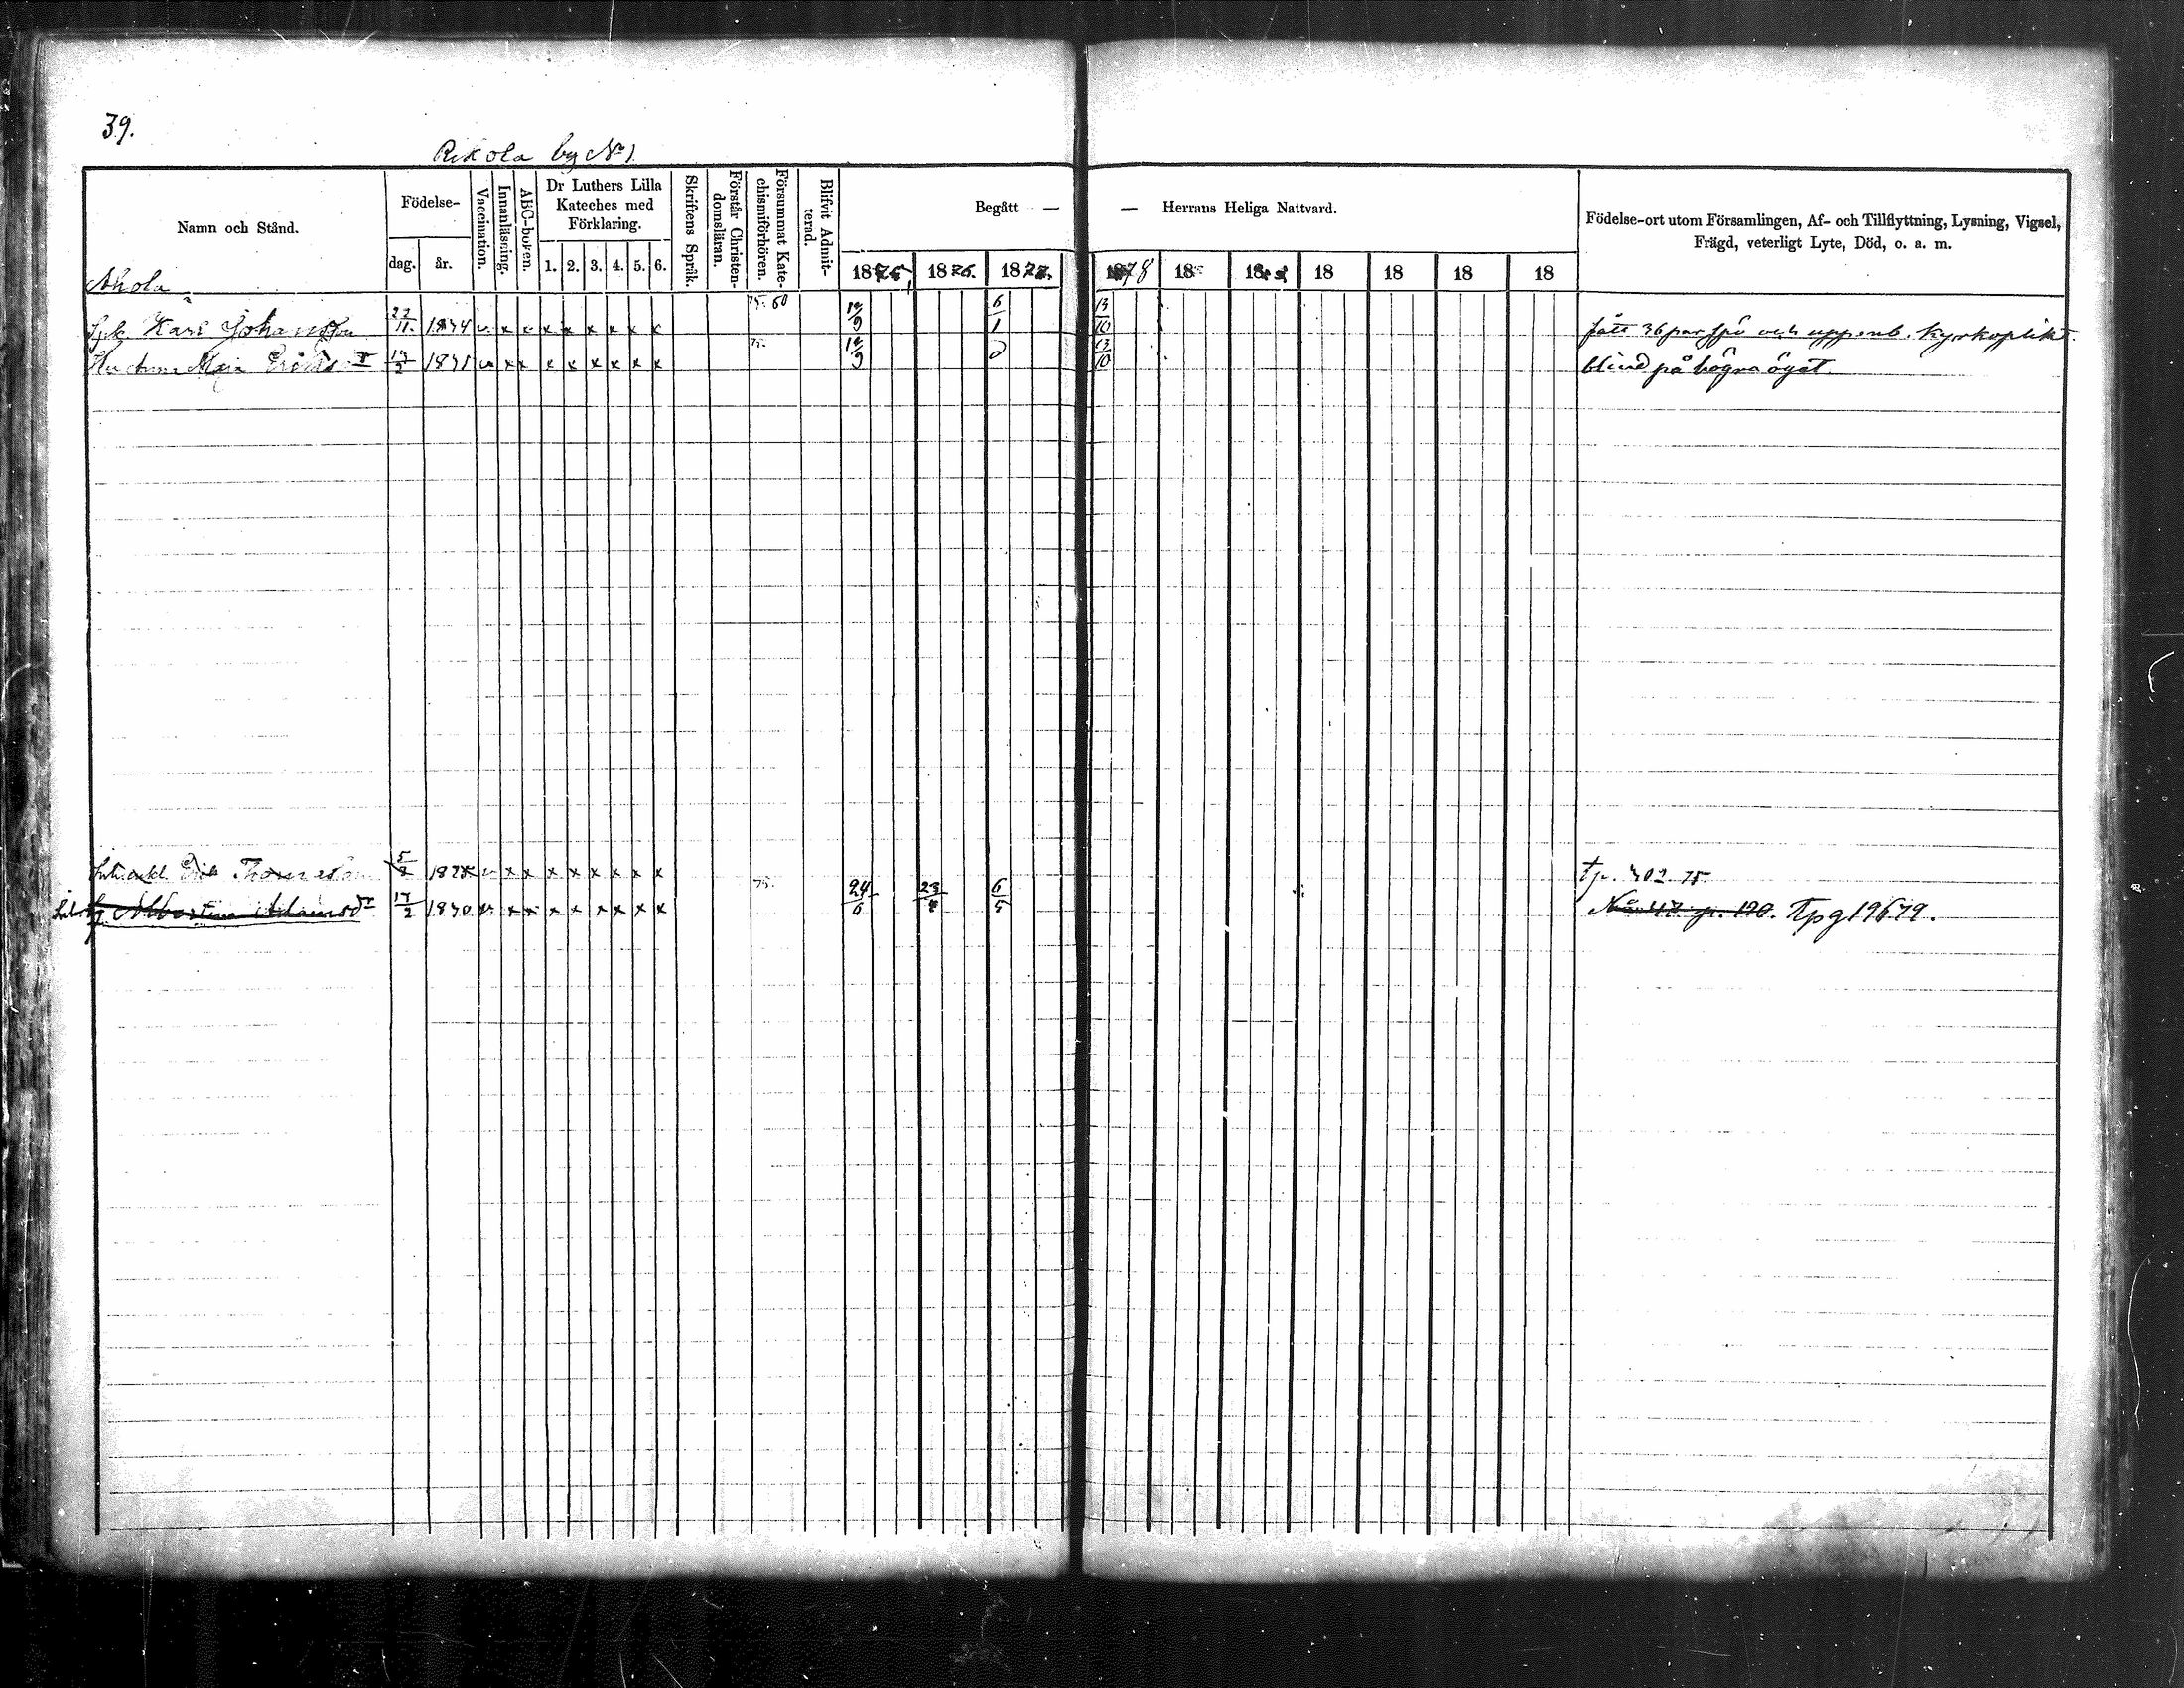 39.
Rikola by No 1.
Namn och Stånd.
Födelse-
dag. år.
Vaccination.
Innanläsning.
ABC-boken.
Dr Luthers Lilla Kateches med Förklaring.
1. 2. 3. 4. 5. 6.
Skriftens Språk.
Förstår Christen-domsläran.
Försummat Kate-chismiförhören.
Blifvit Admit-terad.
Begått — — Herrans Heliga Nattvard.
1875, 1876. 1877. 1878 18 18 18 18 18 18
Födelse-ort utom Församlingen, Af- och Tillflyttning, Lysning, Vigsel, Frägd, veterligt Lyte, Död, o. a. m.
Ahola
Karl Johansson 22/11. 1834 v x v x x x x x x 75. 6/1 13/10 36 par spö och uppenb. kyrkoplikt.
Hustrun Maja Eriksdr 17/2 1831 v x x x x x x x x 75. 13/10 blind på högra ögat.
Erik Thomasson 5/2 v x x x x x x x x tp. 302. 75.
Albertina Adamsdr 17/2 1830 v x x x x x x x x 75. 24/6 6/5 No 47 p. 190. Tpg 196 79.